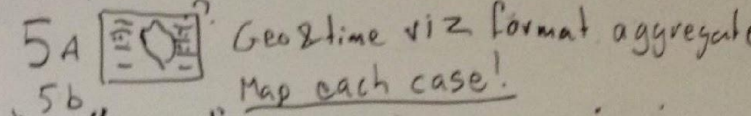 5A ? Geo & time viz format aggregate
5b " " Map each case!